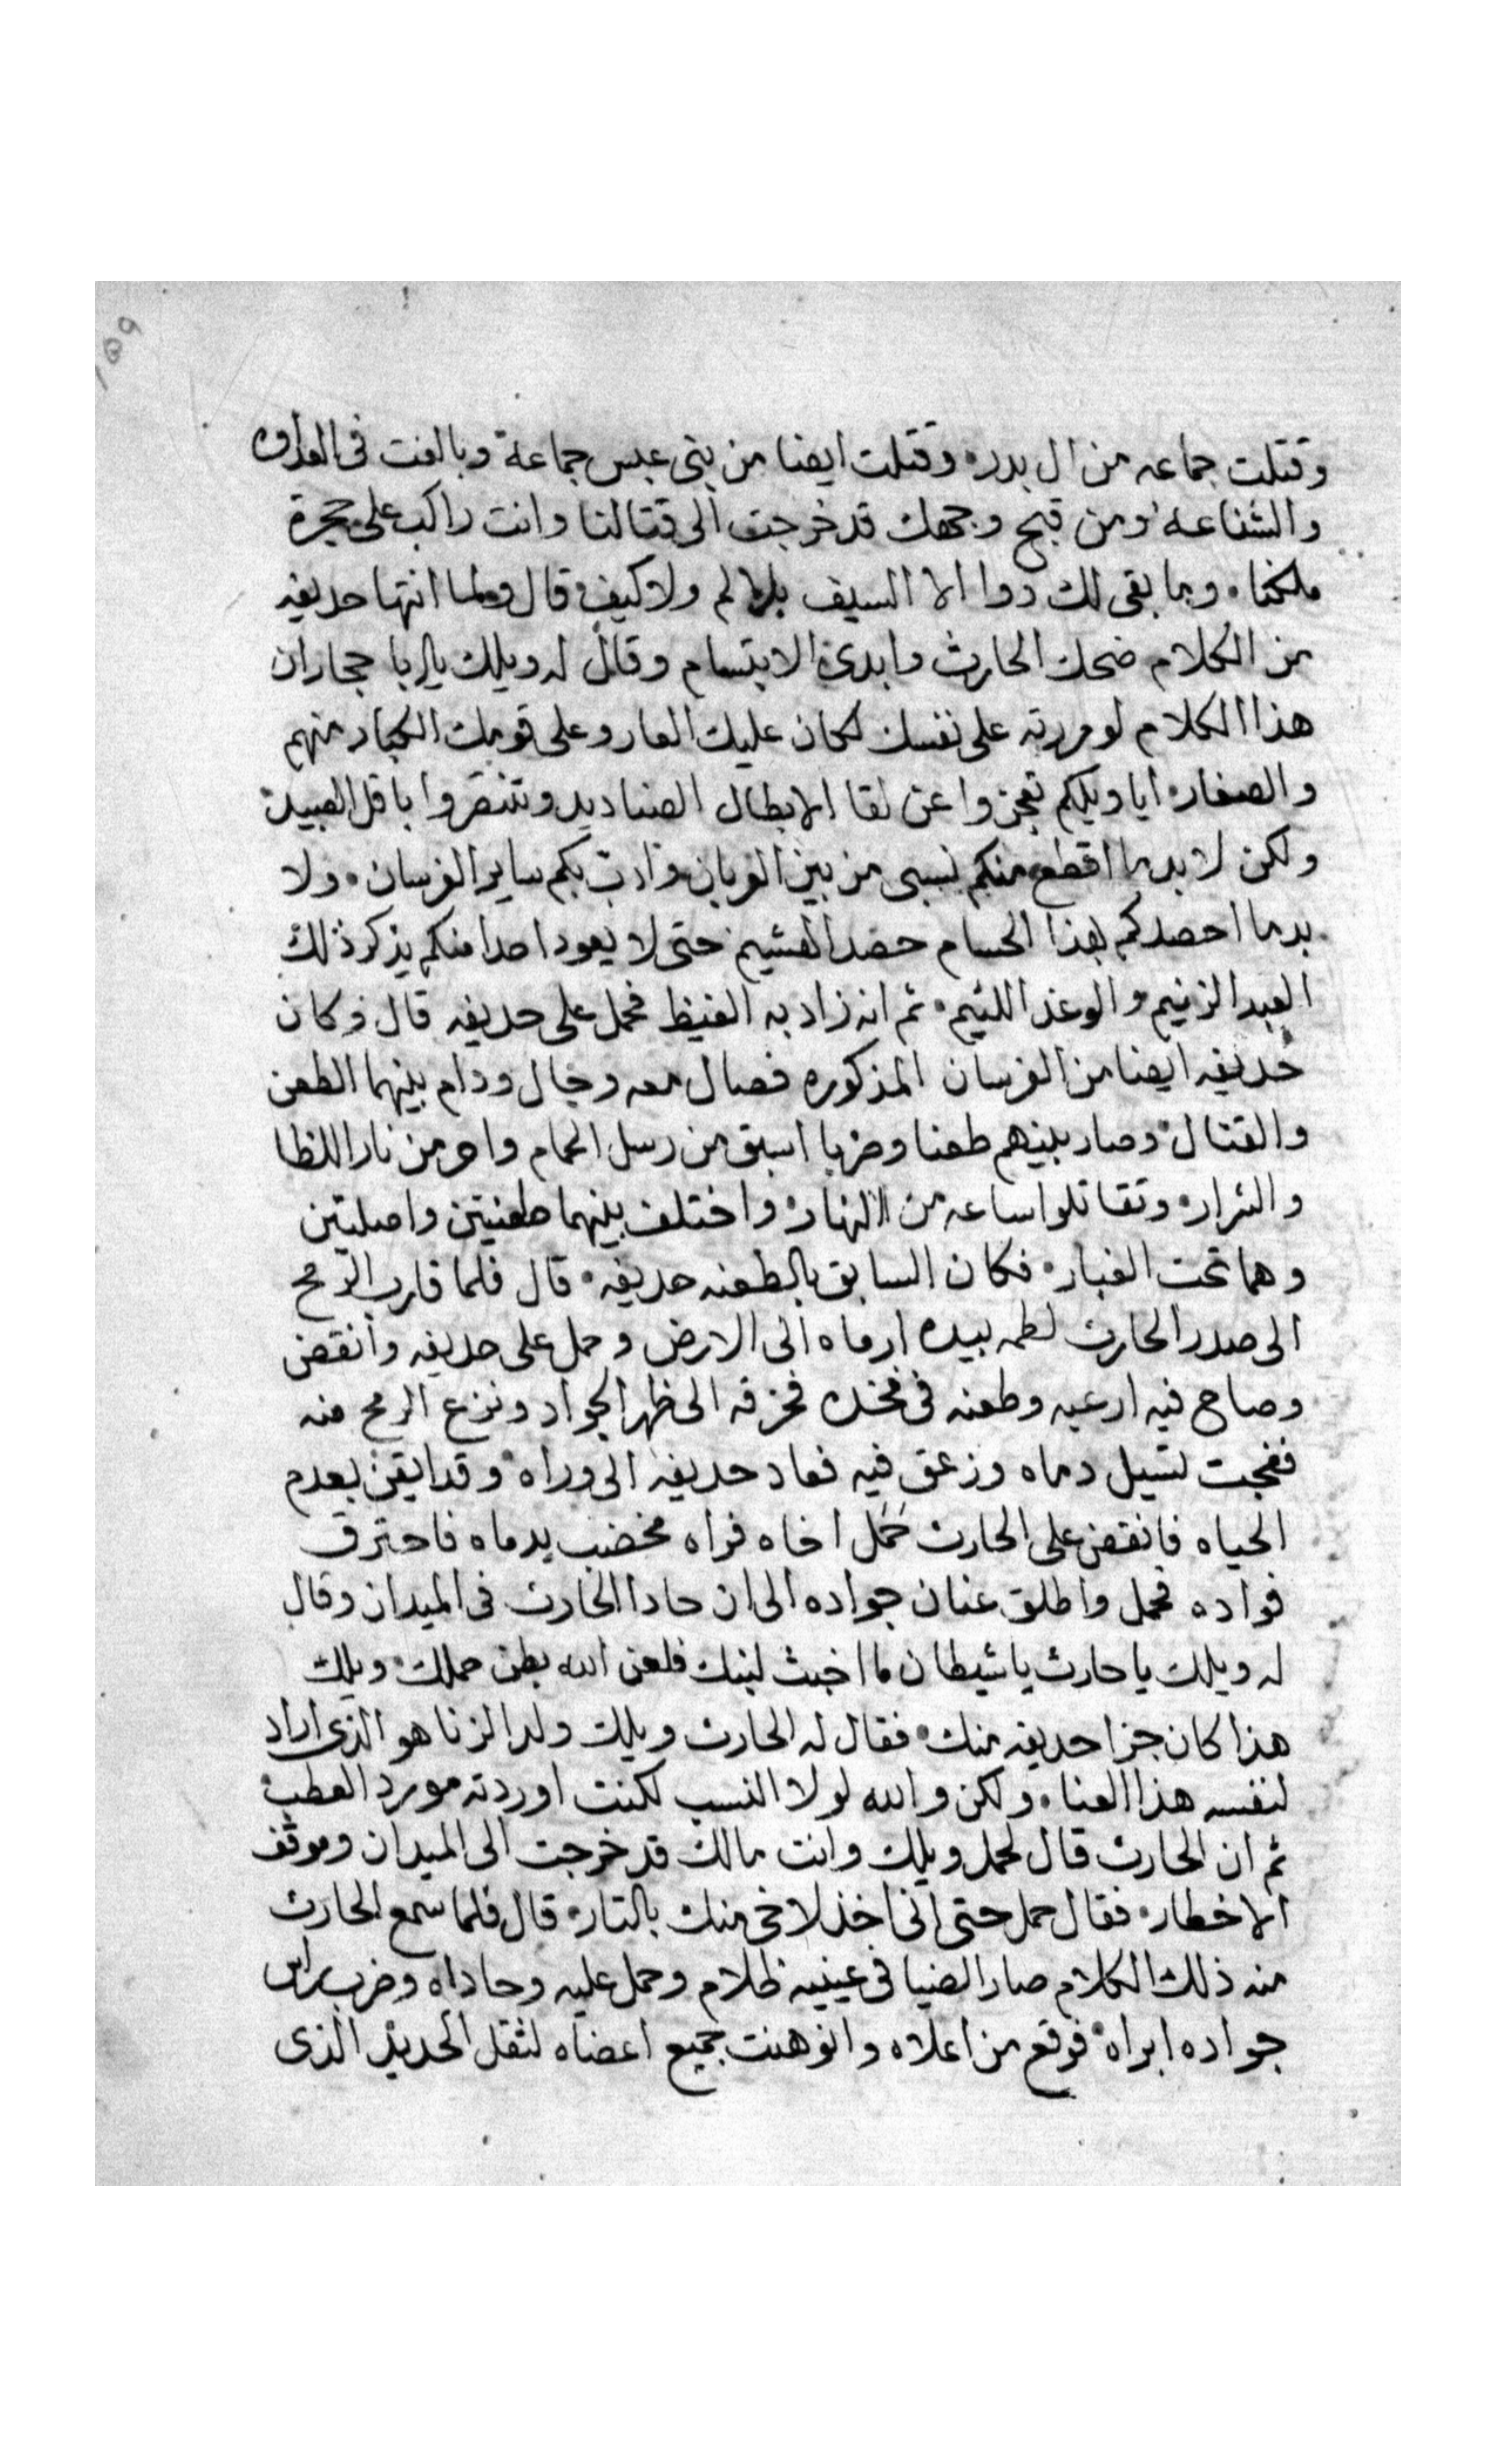 وقتلت جماعه من ال بدر، وقتلت ايضا من بنى عبس جماعة وبالغت فى العداوه
والشناعه، ومن قبح وجهك قد خرجت الى قتالنا وانت راكب على حجرة
ملكنا، وما بقى لك دوا الا السيف بلا لم ولا كيف، قال ولما انتها حديفه
من الكلام ضحك الحارث وابدى الابتسام وقال له ويلك يا ابا حجار ان
هذا الكلام لو مررته على نفسك لكان عليك العار وعلى قومك الكبار منهم
والصغار، ايا ويلكم تعجزوا عن لقا الابطال الصناديد وتنتصروا باقل العبيد،
ولكن لا بد ما اقطع منكم نسبى من بين العربان، وادرت بكم ساير الفرسان، ولا
بد ما احصدكم بهذا الحسام حصد الهشيم، حتى لا يعود احدا منكم يذكر ذلك
العبد الزنيم والوغد اللئيم، ثم انه زاد به الغيظ فحمل على حديفه قال وكان
حديفه ايضا من الفرسان المذكوره فصال معه وجال ودام بينهما الطعن
والقتال، وصار بينهم طعنا وضربا اسبق من رسل الحمام واحر من نار اللظا
والشرار، وتقاتلوا ساعه من النهار، واختلف بينهما طعنيتين واصليتين
وهما تحت الغبار، فكان السابق بالطعنه حديفه، قال فلما قارب الرمح
الى صدر الحارث لطمه بيده ارماه الى الارض وحمل على حديفه وانقض
وصاح فيه ارعبه وطعنه فى فخده فخزقه الى ظهر الجواد ونزع الرمح منه
ففجت تسيل دماه وزعق فيه فعاد حديفه الى وراه، وقد ايقن بعدم
الحياه فانقض على الحارث حمل اخاه فراه مخضب بدماه فاحترق
فواده فحمل واطلق عنان جواده الى ان حادا الحارث فى الميدان وقال
له ويلك يا حارث يا شيطان ما اخبث لبنك فلعن الله بطن حملك، ويلك
هذا كان جزا حديفه منك، فقال له الحارث ويلك ولد الزنا هو الذى اراد
لنفسه هذا العنا، ولكن والله لولا النسب لكنت اوردته مورد العطب،
ثم ان الحارث قال لحمل ويلك وانت مالك قد خرجت الى الميدان وموقف
الاخطار، فقال حمل حتى انى اخذ لاخى منك بالتار، قال فلما سمع الحارث
منه ذلك الكلام صار الضيا فى عينيه ظلام وحمل عليه وحاداه وضرب راس
جواده ابراه، فوقع من اعلاه وانوهنت جميع اعضاه لثقل الحديد الذى